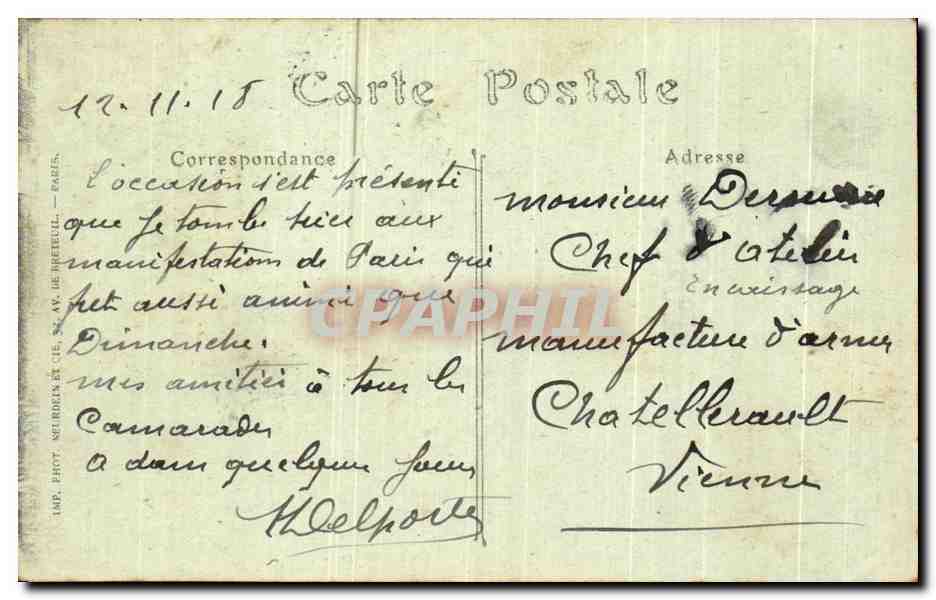 Carte Postale
12.11.18
Correspondance
l'occasion s'est présenté
que je tombe sur aux
manifestations de Paris qui
fut aussi animé que
Dimanche.
mes amitiés à tous les
Camarades
a dans quelques jours
HDelporte
Adresse
monsieur
Chef d'atelier
Encaissage
manufacture d'armes
Chatellerault
Vienne
IMP. PHOT. NEURDEIN ET CIE, 52, AV. DE BRETEUIL. — PARIS.
CPAPHIL